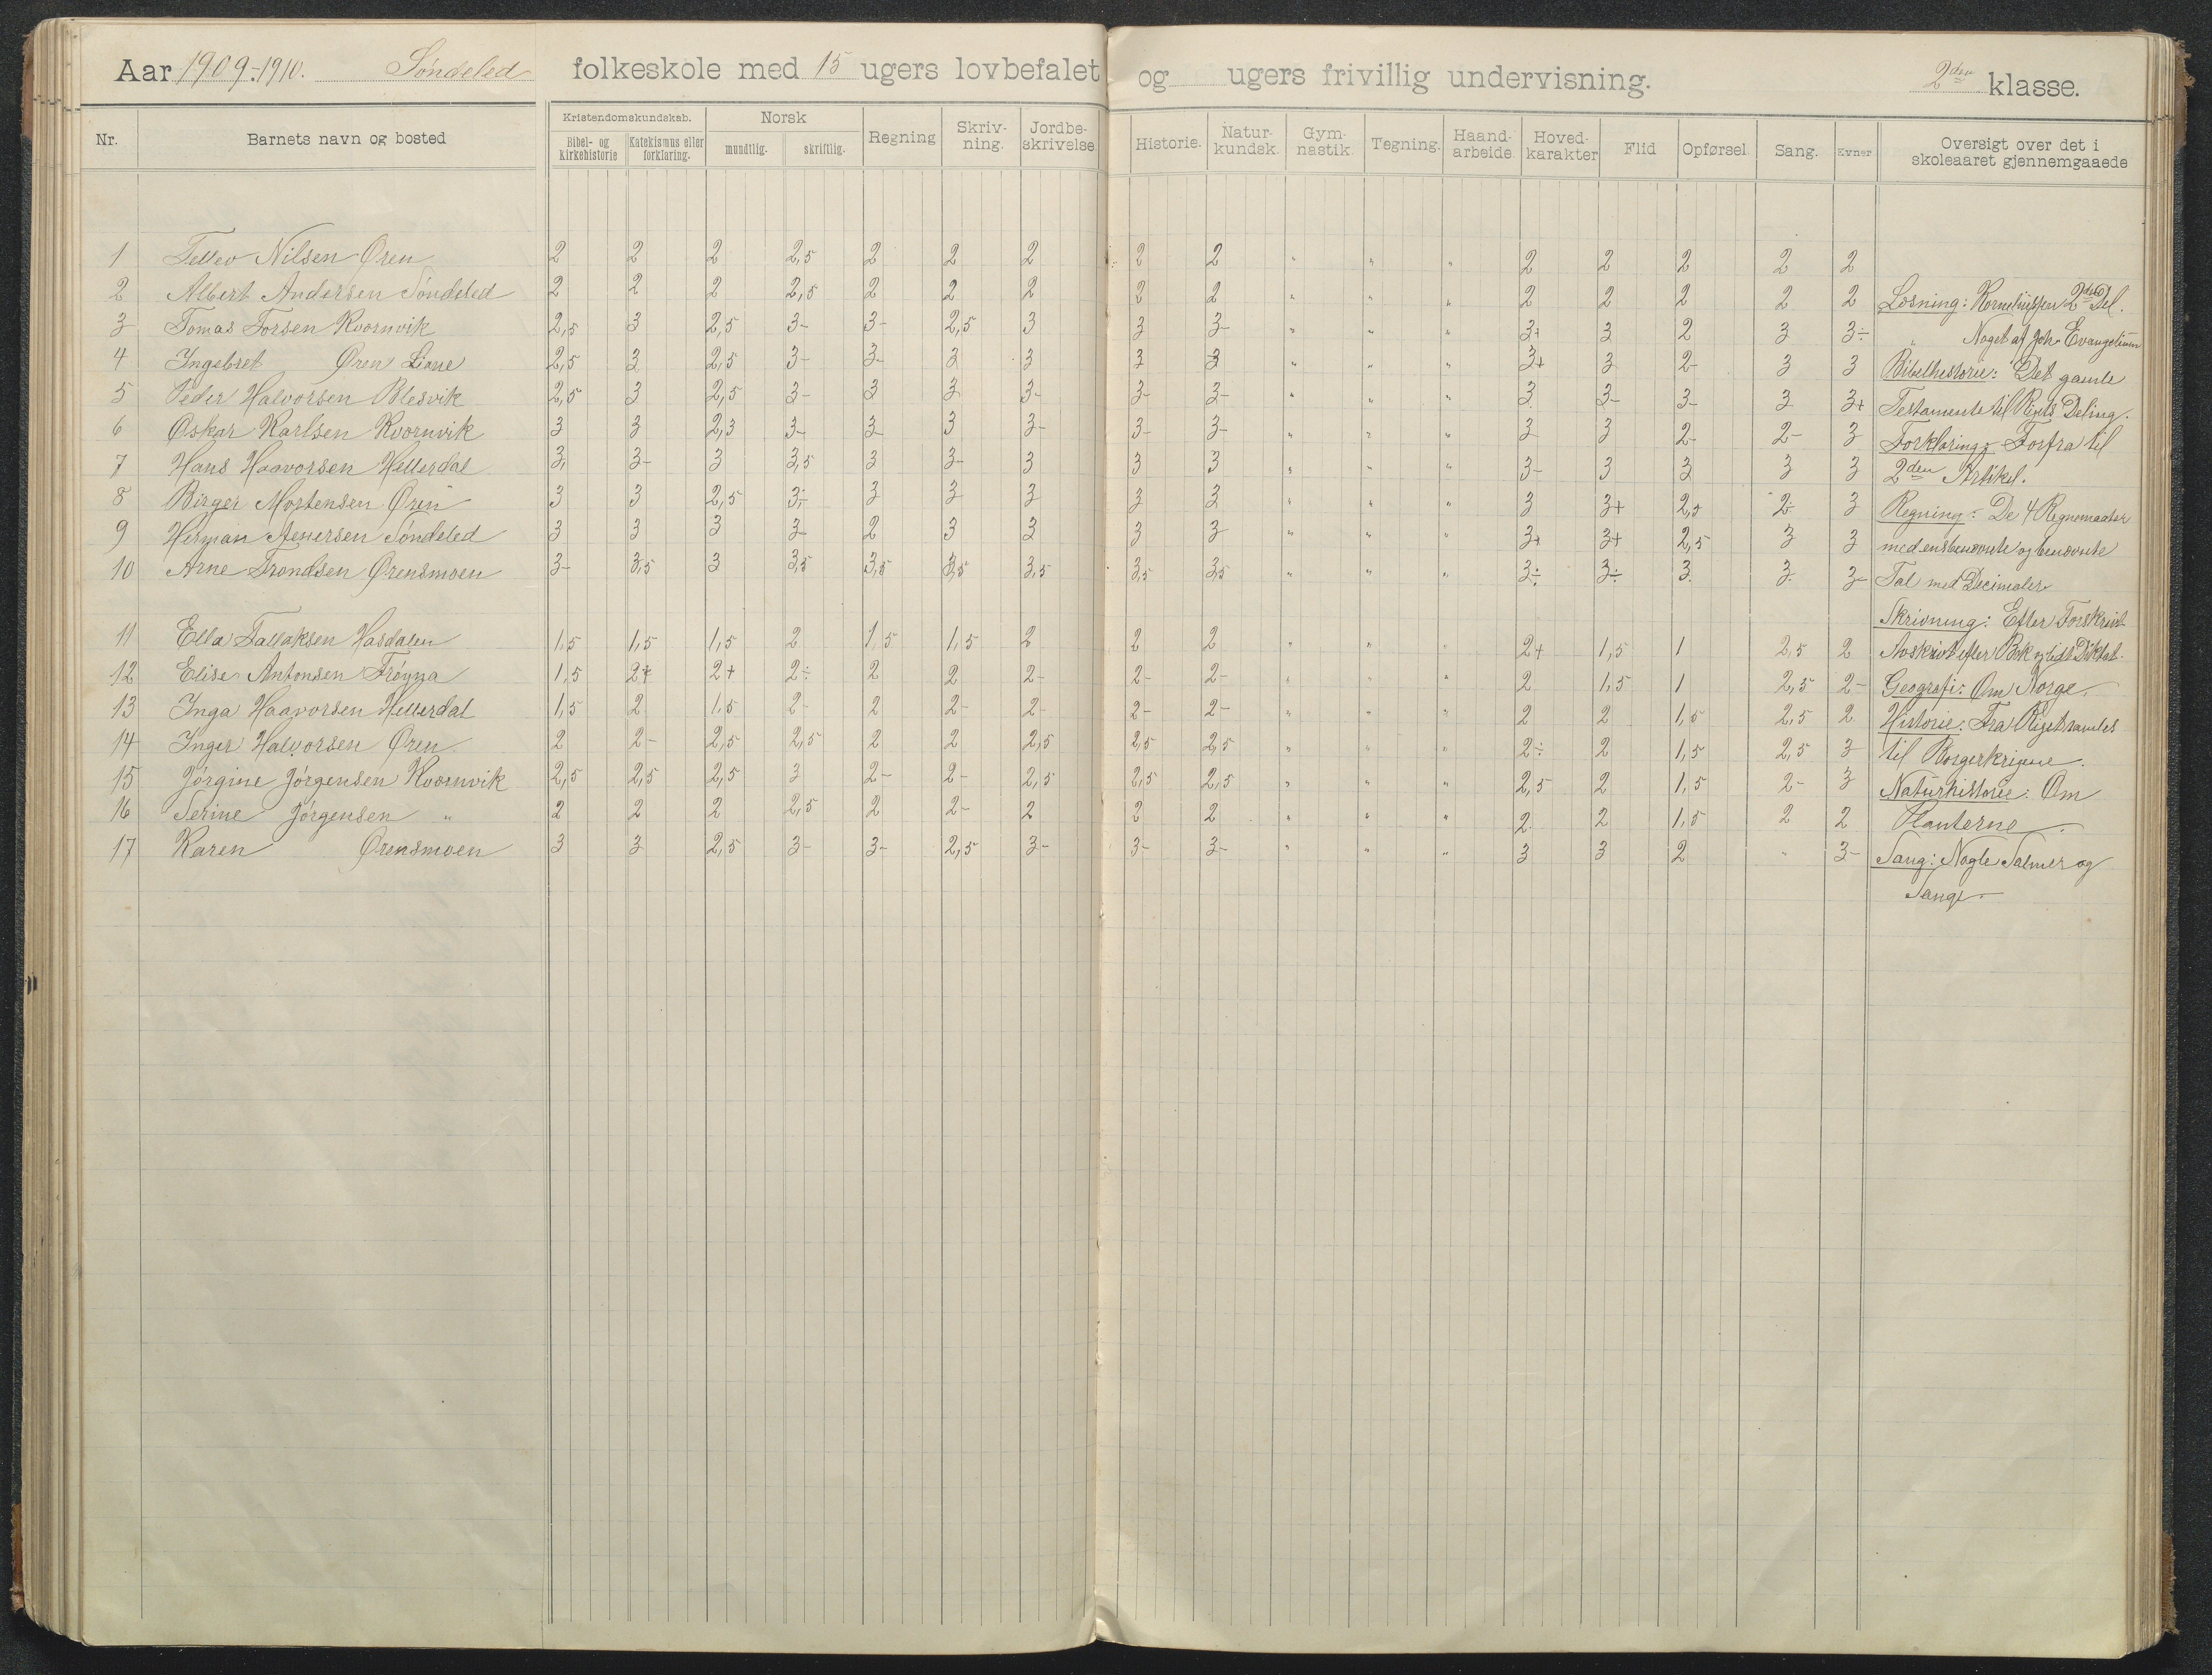 Aar 1909-1910. Søndeled folkeskole med 15 ugers lovbefalet og ugers frivillig undervisning. 2den klasse.
Nr. Barnets navn og bosted Kristendomskundskab. Bibel- og kirkehistorie Katekismus eller forklaring. Norsk mundtlig. skriftlig. Regning Skriv-ning. Jordbe-skrivelse. Historie. Natur-kundsk. Gym-nastik. Tegning. Haand-arbeide. Hoved-karakter Flid Opførsel Sang. Evner Oversigt over det i skoleaaret gjennemgaaede
1 Tellev Nilsen Øren 2 2 2 2,5 2 2 2 2 2 " " " 2 2 2 2 2
2 Albert Andersen Søndeled 2 2 2 2,5 2 2 2 2 2 " " " 2 2 2 2 2 Læsning: Korneliussen 2den Del.
3 Tomas Torsen Kvornvik 2,5 3 2,5 3- 3- 2,5 3 3 3- " " " 3+ 3 2 3 3÷ " Noget af Joh. Evangelium
4 Ingebret Øren Liane 2,5 3 2,5 3- 3- 3 3 3 3 " " " 3+ 3 2- 3 3 Bibelhistorie: Det gamle
5 Peder Halvorsen Blesvik 2,5 3 2,5 3- 3 3 3- 3- 3- " " " 3 3- 3- 3 3+ Testamente til Rigets Deling.
6 Oskar Karlsen Kvornvik 3 3 2,3 3- 3- 3 3- 3- 3- " " " 3- 3 2- 2- 3 Forklaring: Forfra til
7 Hans Haavorsen Hellerdal 3, 3- 3 3,5 3 3- 3 3 3 " " " 3- 3 3 3 3 2den Artikel.
8 Birger Mortensen Øren 3 3 2,5 3÷ 3 3 3 3 3 " " " 3 3+ 2,5 2- 3 Regning: De 4 Regnemaater
9 Herman Aenersen Søndeled 3 3 3 3- 2 3 3 3 3- " " " 3+ 3+ 2,5 3 3 med ensbenævnte og benævnte
10 Arne Trondsen Ørensmoen 3- 3,5 3 3,5 3,5 3,5 3,5 3,5 3,5 " " " 3÷ 3÷ 3 3 3- Tal med Decimaler
Skrivning: Efter Forskrift
11 Ella Tallaksen Hasdalen 1,5 1,5 1,5 2 1,5 1,5 2 2 2 " " " 2+ 1,5 1 2,5 2 Avskrivt efter Bok og lidt Diktat.
12 Elise Antonsen Frøyna 1,5 2+ 2+ 2÷ 2 2 2- 2- 2- " " " 2 1,5 1 2,5 2- Geografi: Om Norge.
13 Inga Haavorsen Hellerdal 1,5 2 1,5 2- 2 2- 2- 2- 2- " " " 2 2 1,5 2,5 2 Historie: Fra Riget samles
14 Inger Halvorsen Øren 2 2- 2,5 2,5 2 2 2,5 2,5 2,5 " " " 2÷ 2 1,5 2,5 3 til Borgerkrigene.
15 Jørgine Jørgensen Kvornvik 2,5 2,5 2,5 3 2- 2- 2,5 2,5 2,5 " " " 2,5 2 1,5 2- 3 Naturhistorie: Om
16 Serine Jørgensen " 2 2 2 2,5 2 2- 2 2 2 " " " 2 2 1,5 2 2 Planterne.
17 Karen Ørensmoen 3 3 2,5 3- 3- 2,5 3- 3- 3- " " " 3 3 2 " 3- Sang: Nogle Salmer og
Sange.